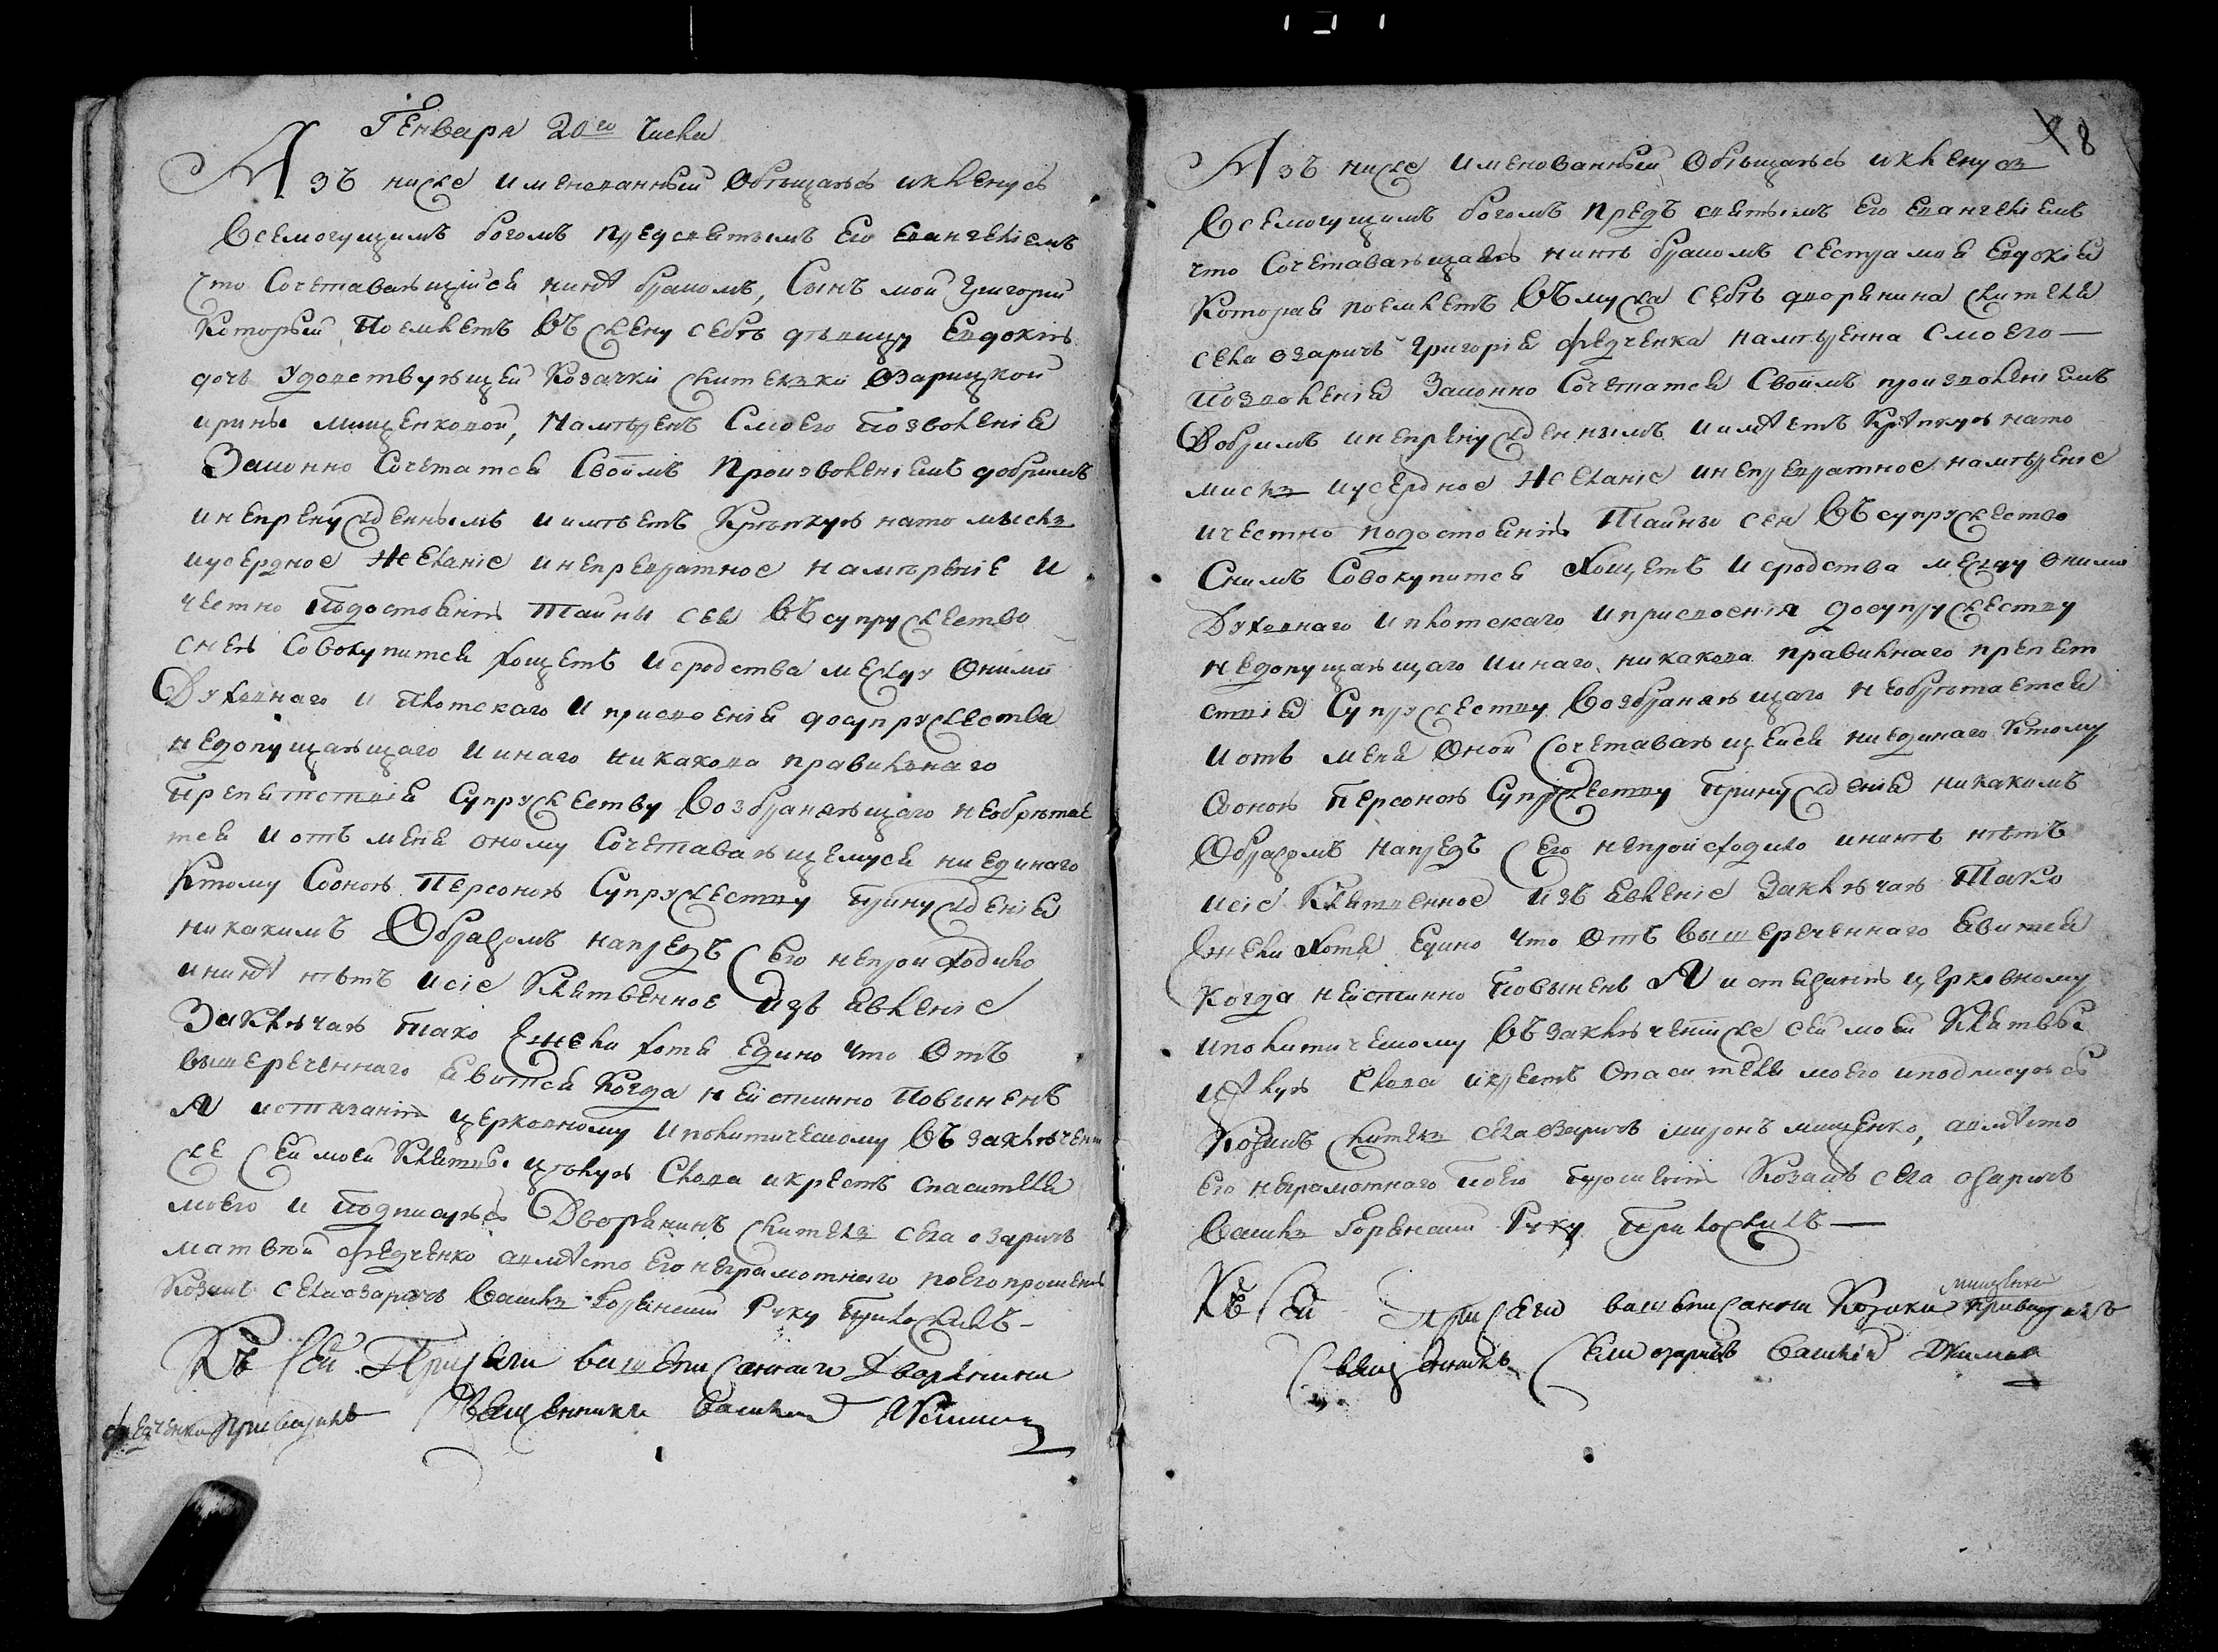 Генваря 20го числа
Азъ ниже именованный обѣщаюсь икленусь
Всемогущимъ богомъ предсвятымъ Его Евангелиемъ
что Сочетавающийся нинѣ бракомъ, Сынъ мой Григорий
Который Поемлетъ Въ жену себѣ дѣвицу Евдокию
дочь Удовствующей Козачки жителки Озарицкой
ирины мищенковой, Намѣренъ Смоего Позволения
Законно Сочетатся Своимъ Произволениемъ добримъ
инепренужденнымъ иимѣетъ Крѣпкую нато мысль
иусердное Желание инепревратное намѣрение и
честно Подостоянию Тайны сея Въсупружество
снею Совокупится хощетъ исродства между Оними
Духовнаго и Плотскаго и присвоения досупружества
недопущающаго иинаго никакова правилнаго
Препятствия Супружеству Возбраняющаго необрѣтае
тся иотъ мене оному Сочетавающемуся ниединаго
Ктому Соною Персоною Супружеству Принуждения
никакимъ Образомъ напредъ Сего непроисходило
ининѣ нѣтъ исие Клятвенное изъ явление
Заключаю тако Ежели хотя едино что Отъ
вышереченнаго явится когда неистинно Повиненъ
Я истязанию церковному иполитическому Въ заключени
же Сей моей Клятвы цѣлую Слова икрестъ спасителя
моего и Подписуюсь Дворянинъ житель села озаричъ
матвѣй федченко авмѣсто Его неграмотнаго поегопрошению
Козакъ села озаричъ Василь Горѣнский Руку Приложилъ –
Къ Сей Присяги вишеписаннаго Дворянина
федченка Приводилъ Священникъ Василий
8
Азъ ниже именованный обѣщаюсь икленусь
Всемогущимъ богомъ предъ святымъ Его Евангелиемъ
что Сочетавающаясь нинѣ бракомъ сестра моя Евдокия
Которая поемлетъ Въмужа себѣ дворянина жителя
села озаричъ Григория федченка намѣренна Смоего —
Позволения Законно Сочетатся Своимъ произволениемъ
Добримъ инепренужденнымъ иимѣетъ Крѣпкую нато
мисль иусердное Желание инепревратное намѣрение
ичестно подостоянию Тайны сея Въсупружество
Снимъ Совокупится Хощетъ исродства между оними
Духовнаго иплотскаго иприсвоения досупружеству
недопущающаго иинаго никакова правилнаго препят
ствия Супружеству Возбраняющаго необрѣтается
иотъ мене оной Сочетавающейся ниединаго Ктому
Соною Персоною Супружеству Принуждения никакимъ
Образомъ напредъ Сего непроисходило ининѣ нѣтъ
исие Клятвенное изъ явление Заключаю Тако
Ежели хотя Едино что Отъ вышереченнаго явится
когда неистинно Повыненъ Я истязанию церковному
иполитическому Въ заключении же сей моей Клятвы
цѣлую Слова икрестъ Спасителя моего иподписуюсь
Козакъ житель села озаричъ миронъ мищенко, авмѣсто
Его неграмотнаго Поего Прошению Козакъ села озаричъ
Василь Горѣнский Руку Приложилъ —
Къ Сей Присяги вишеписанна Козака мищенка Приводилъ
Священникъ Села озаричъ Василий